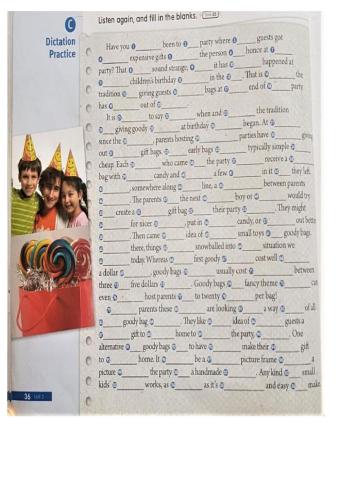 C
Dictation
Practice
Listen again, and fill in the blanks.
Have you ______ been to ______ party where ______ guests got
______ expensive gifts ______ the person ______ honor at ______
party? That ______ sound strange, ______ it has ______ happened at
______ children's birthday ______ in the ______. That is ______ the
tradition ______ giving guests ______ bags at ______ end of ______ party
has ______ out of ______.
It is ______ to say ______ when and ______ the tradition
______ giving goody ______ at birthday ______ began. At ______
since the ______ parents hosting ______ parties have ______ giving
out ______ gift bags. ______ early bags ______ typically simple ______
cheap. Each ______ who came ______ the party ______ receive a ______
bag with ______ candy and ______ a few ______ in it ______ they left.
______, somewhere along ______ line, a ______ between parents
______. The parents ______ the next ______ boy or ______ would try
______ create a ______ gift bag ______ their party ______. They might
______ for nicer ______, put in ______ candy, or ______ out better
______. Then came ______ idea of ______ small toys ______ goody bags.
______ there, things ______ snowballed into ______ situation we
______ today. Whereas ______ first goody ______ cost well ______
a dollar ______, goody bags ______ usually cost ______ between
three ______ five dollars ______. Goody bags ______ fancy theme ______ cat
even ______ host parents ______ to twenty ______ per bag!
______ parents these ______ are looking ______ a way ______ of all
______ goody bag ______. They like ______ idea of ______ guests a
______ gift to ______ home to ______ the party, ______. One
alternative ______ goody bags ______ to have ______ make their ______ gift
to ______ home. It ______ be a ______ picture frame ______ a
picture ______ the party ______ a handmade ______. Any kind ______ small
kids' ______ works, as ______ as it's ______ and easy ______ make
36